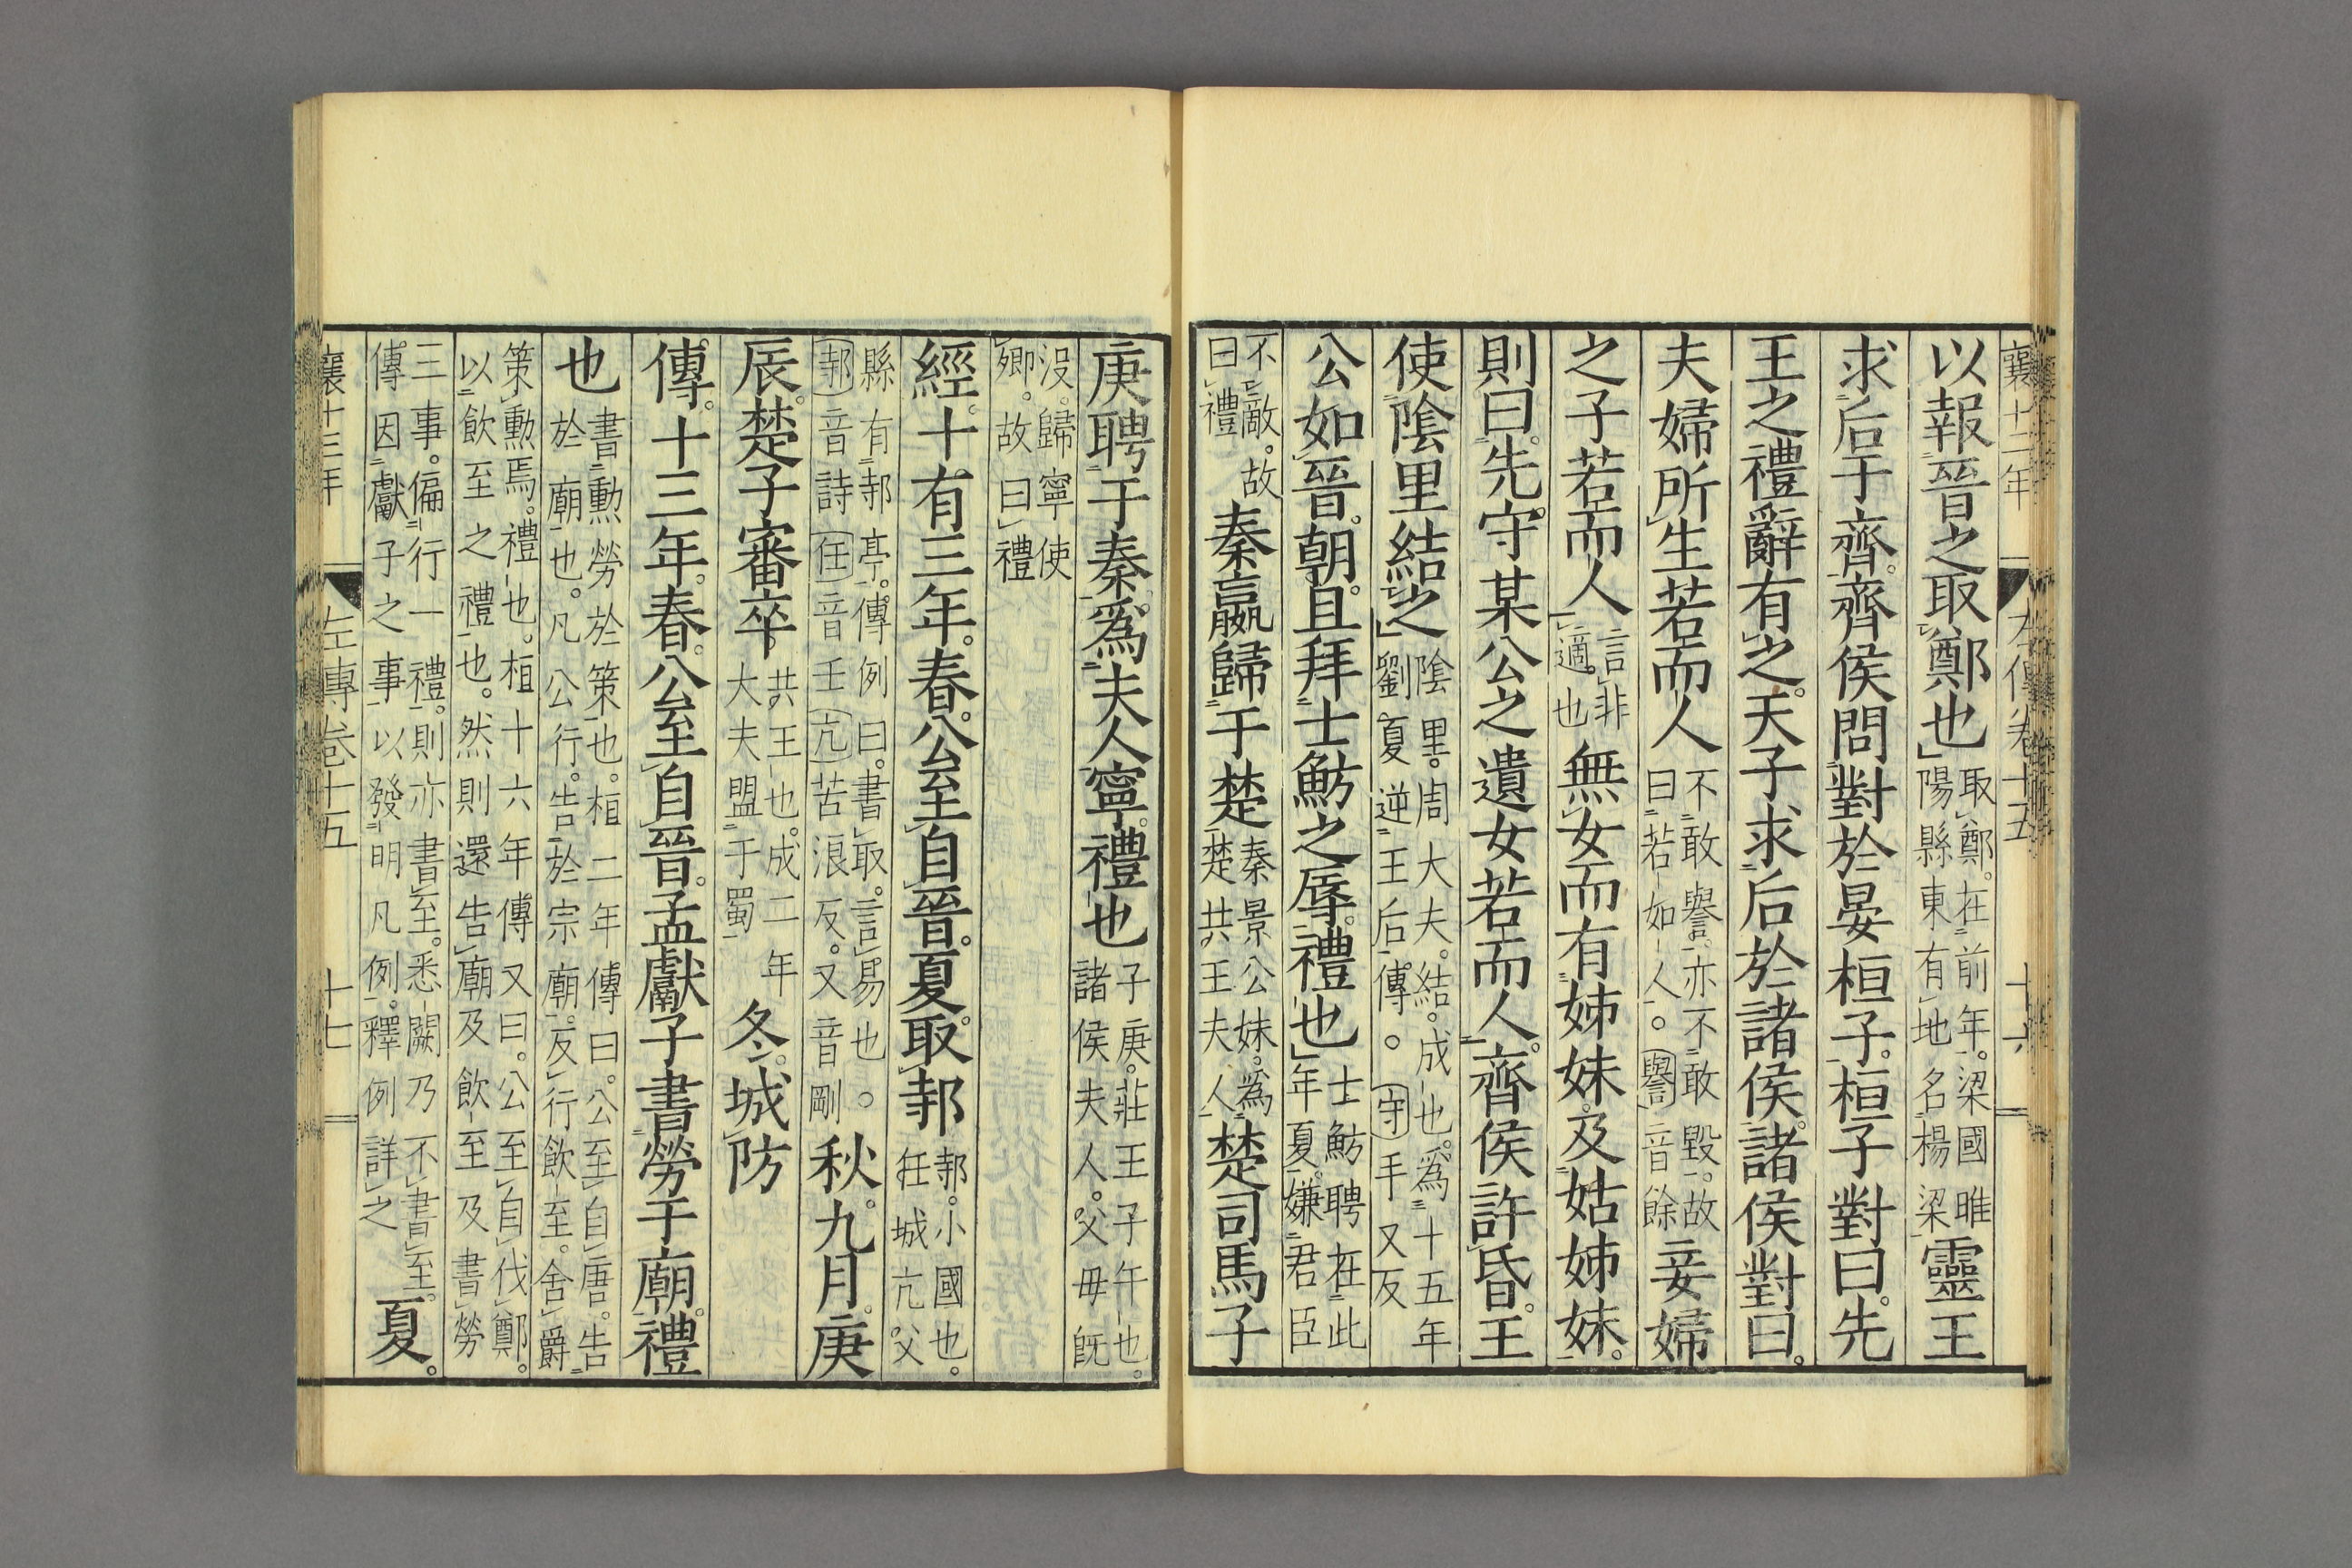 襄十二年　左傳卷十五　十六
以報晉之取鄭也取鄭在前年梁國睢陽縣東有地名楊梁靈王
求后于齊齊侯問對於晏桓子桓子對曰先
王之禮辭有之天子求后於諸侯諸侯對曰
夫婦所生若而人不敢譽亦不敢毀故曰若如人○譽音餘妾婦
之子若而人言非適也無女而有姊妹及姑姊妹
則曰先守某公之遺女若而人齊侯許昏王
使陰里結之陰里周大夫結成也爲十五年劉夏逆王后傳○守手又反
公如晉朝且拜士魴之辱禮也士魴聘在此年夏嫌君臣
不敵故曰禮秦嬴歸于楚秦景公妹爲楚共王夫人楚司馬子
庚聘于秦爲夫人寧禮也子庚莊王子午也諸侯夫人父母既
沒歸寧使卿故曰禮
經十有三年春公至自晉夏取邿邿小國也任城亢父
縣有邿亭傳例曰書取言易也○邿音詩任音壬亢苦浪反又音剛秋九月庚
辰楚子審卒共王也成二年大夫盟于蜀冬城防
傳十三年春公至自晉孟獻子書勞于廟禮
也書勳勞於策也桓二年傳曰公至自唐告於廟也凡公行告於宗廟反行飲至舍爵
策勳焉禮也桓十六年傳又曰公至自伐鄭以飲至之禮也然則還告廟及飲至及書勞
三事偏行一禮則亦書至悉闕乃不書至傳因獻子之事以發明凡例釋例詳之夏
襄十三年　左傳卷十五　十七